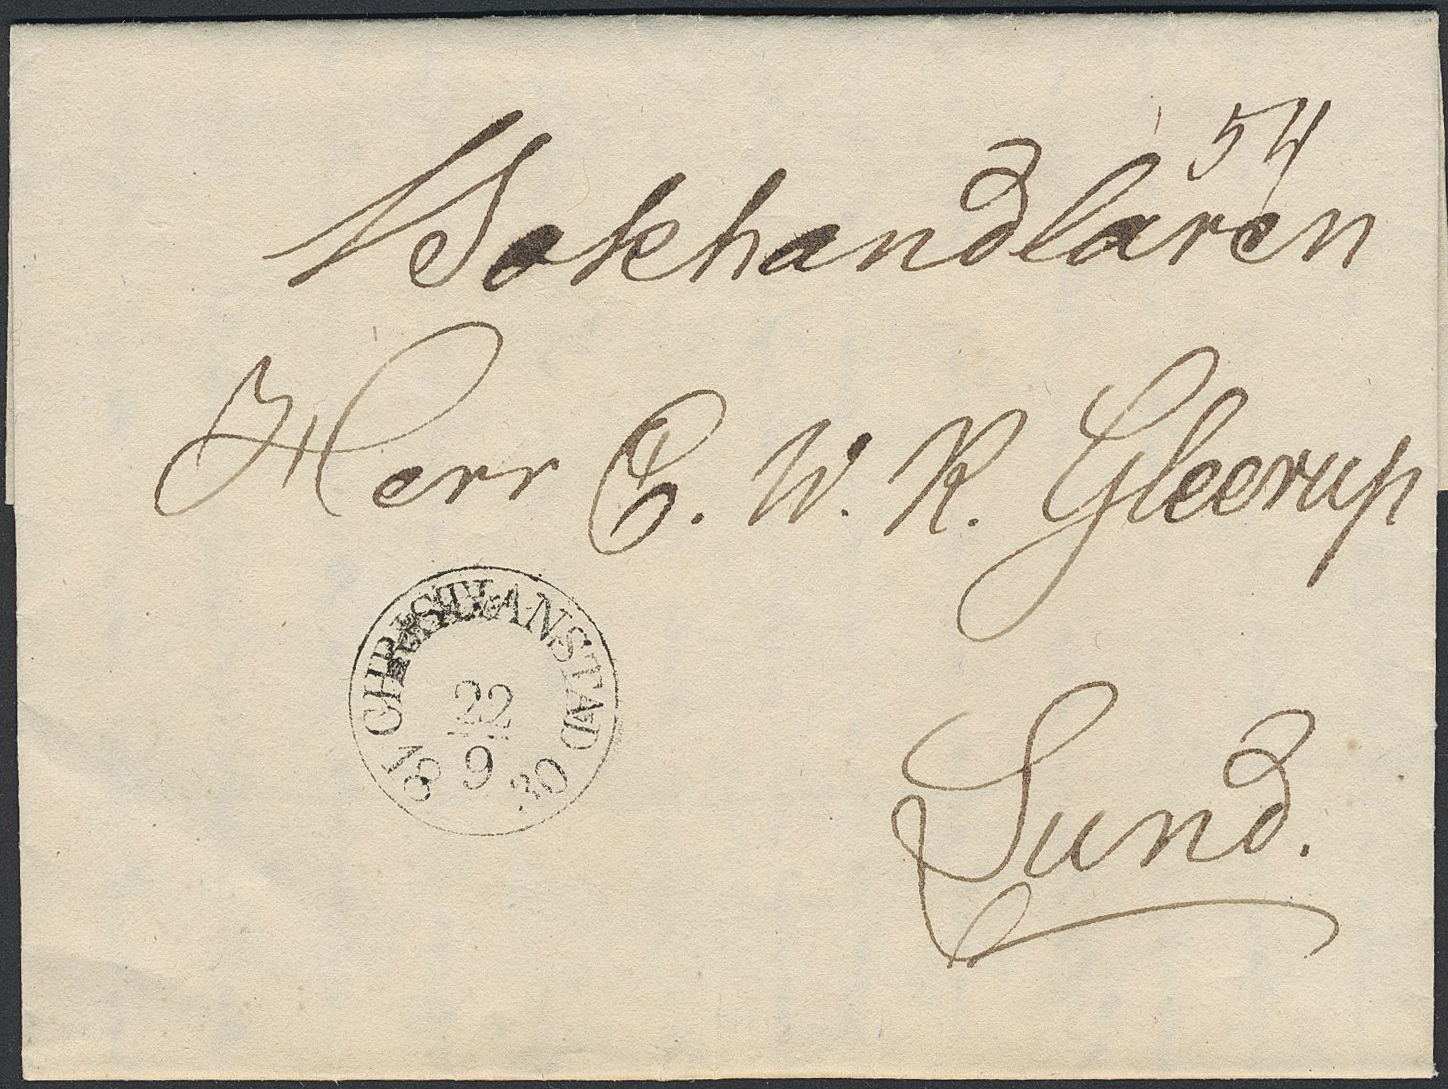 54
Bokhandlaren
Herr C. W. K. Gleerup
CHRISTIANSTAD
22
9
1830
Lund.